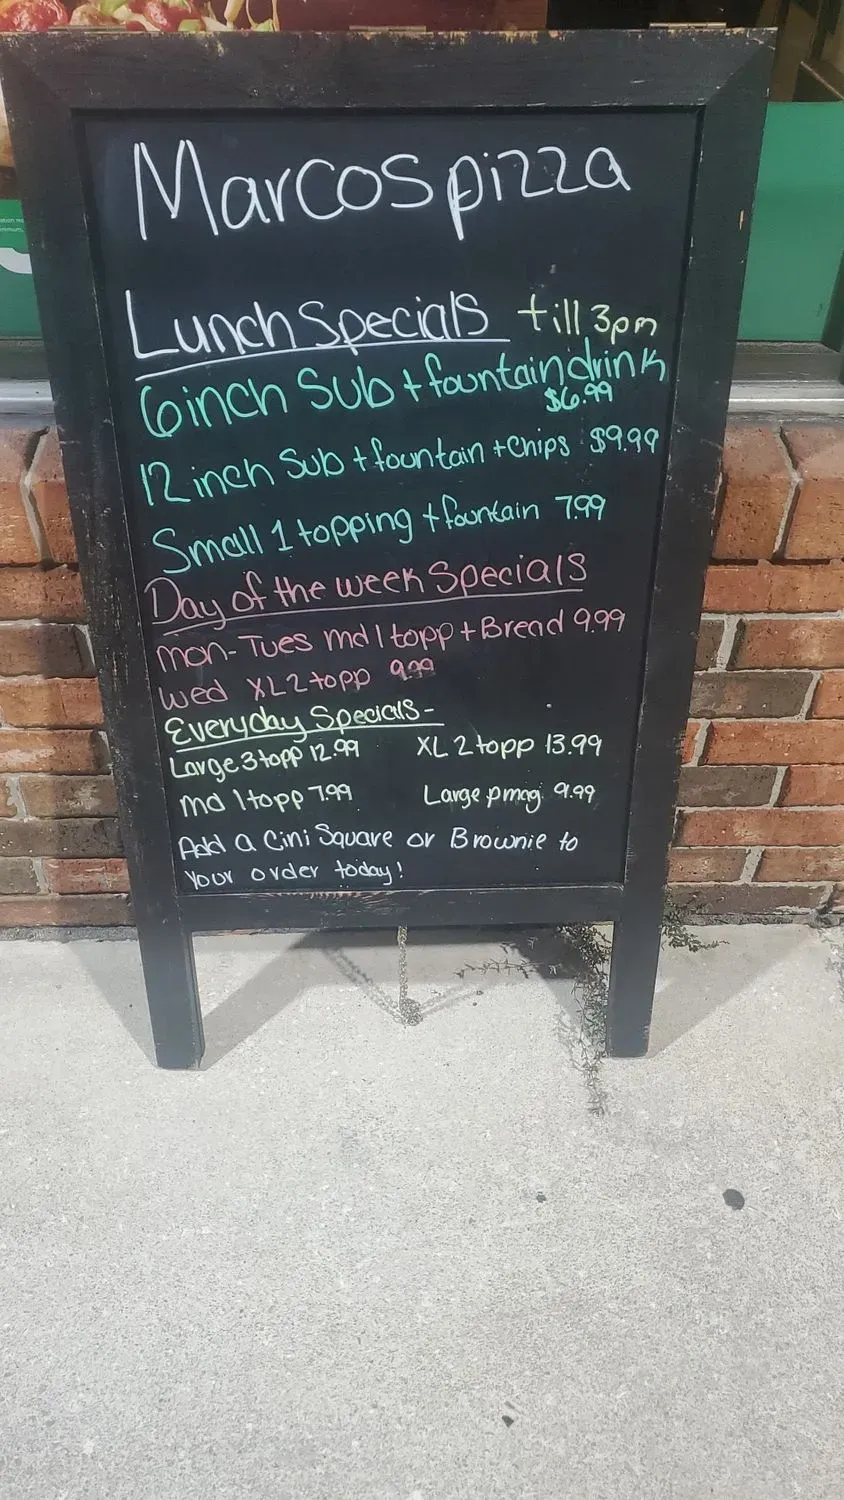 Marcos pizza
Lunch Specials till 3pm
6inch Sub + fountain drink
$6.99
12 inch Sub + fountain + Chips $9.99
Small 1 topping + fountain 7.99
Day of the week Specials
Mon- Tues md 1 topp + Bread 9.99
Wed XL 2 topp 9.99
Everyday Specials-
Large 3 topp 12.99 XL 2 topp 13.99
md 1 topp 7.99 Large pmag. 9.99
Add a Cini Square or Brownie to
Your order today!